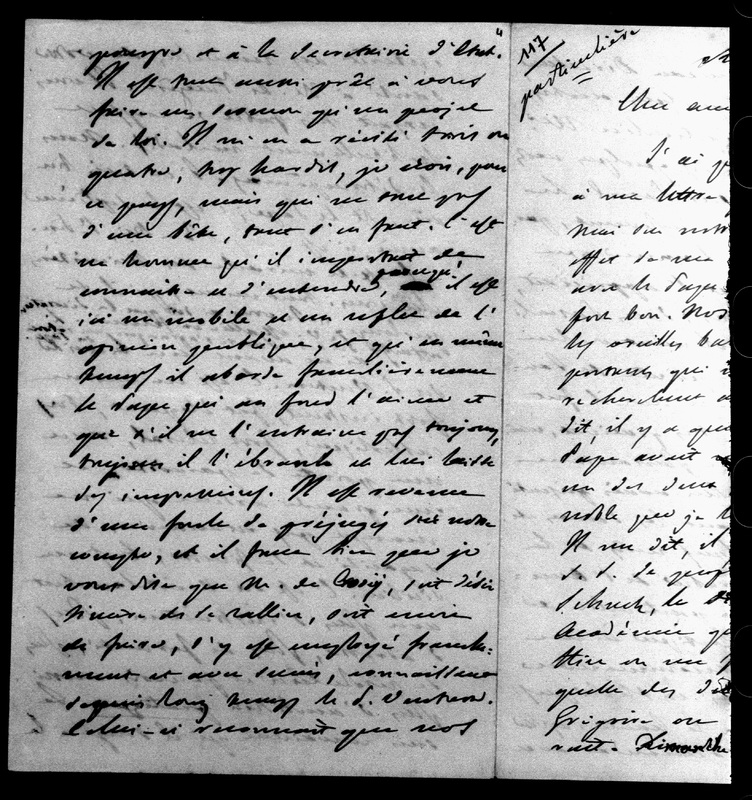 pourpre et à la Secrétairie d'Etat."
Il est tout aussi prêt à vous
faire un sermon qu'un projet
de loi. Il m'en a récité trois ou
quatre, trop hardis, je crois, pour
ce pays, mais qui ne sont pas
d'une bête, tant s'en faut. C'est
un homme qu'il importait de
connaître et d'entendre, puisqu'il est
ici un mobile et un reflet de l'
opinion publique, et qu'en même
temps il aborde familièrement
le Pape qui au fond l'aime et
que s'il ne l'entraîne pas toujours,
toujours il l'ébranle et lui laisse
des impressions. Il est revenu
d'une foule de préjugés sur notre
compte, et il faut bien que je
vous dise que M. de, soit désir
sincère de se rallier, soit envie
de faire, s'y est employé franche-
ment et avec succès, connaissant
depuis long temps le P. Ventura.
Celui-ci reconnaît que nos
117
particulière
Cher ami
J'ai
à ma lettre
moi
effet de ma
avec le Pape
fort bon. Nos
les oreilles
portants qui
recherchent
dit, il y a
Pape avait
un des deux
noble que je
Il me dit, il
Académie
quelle des
Grégoire ou
Dimanche